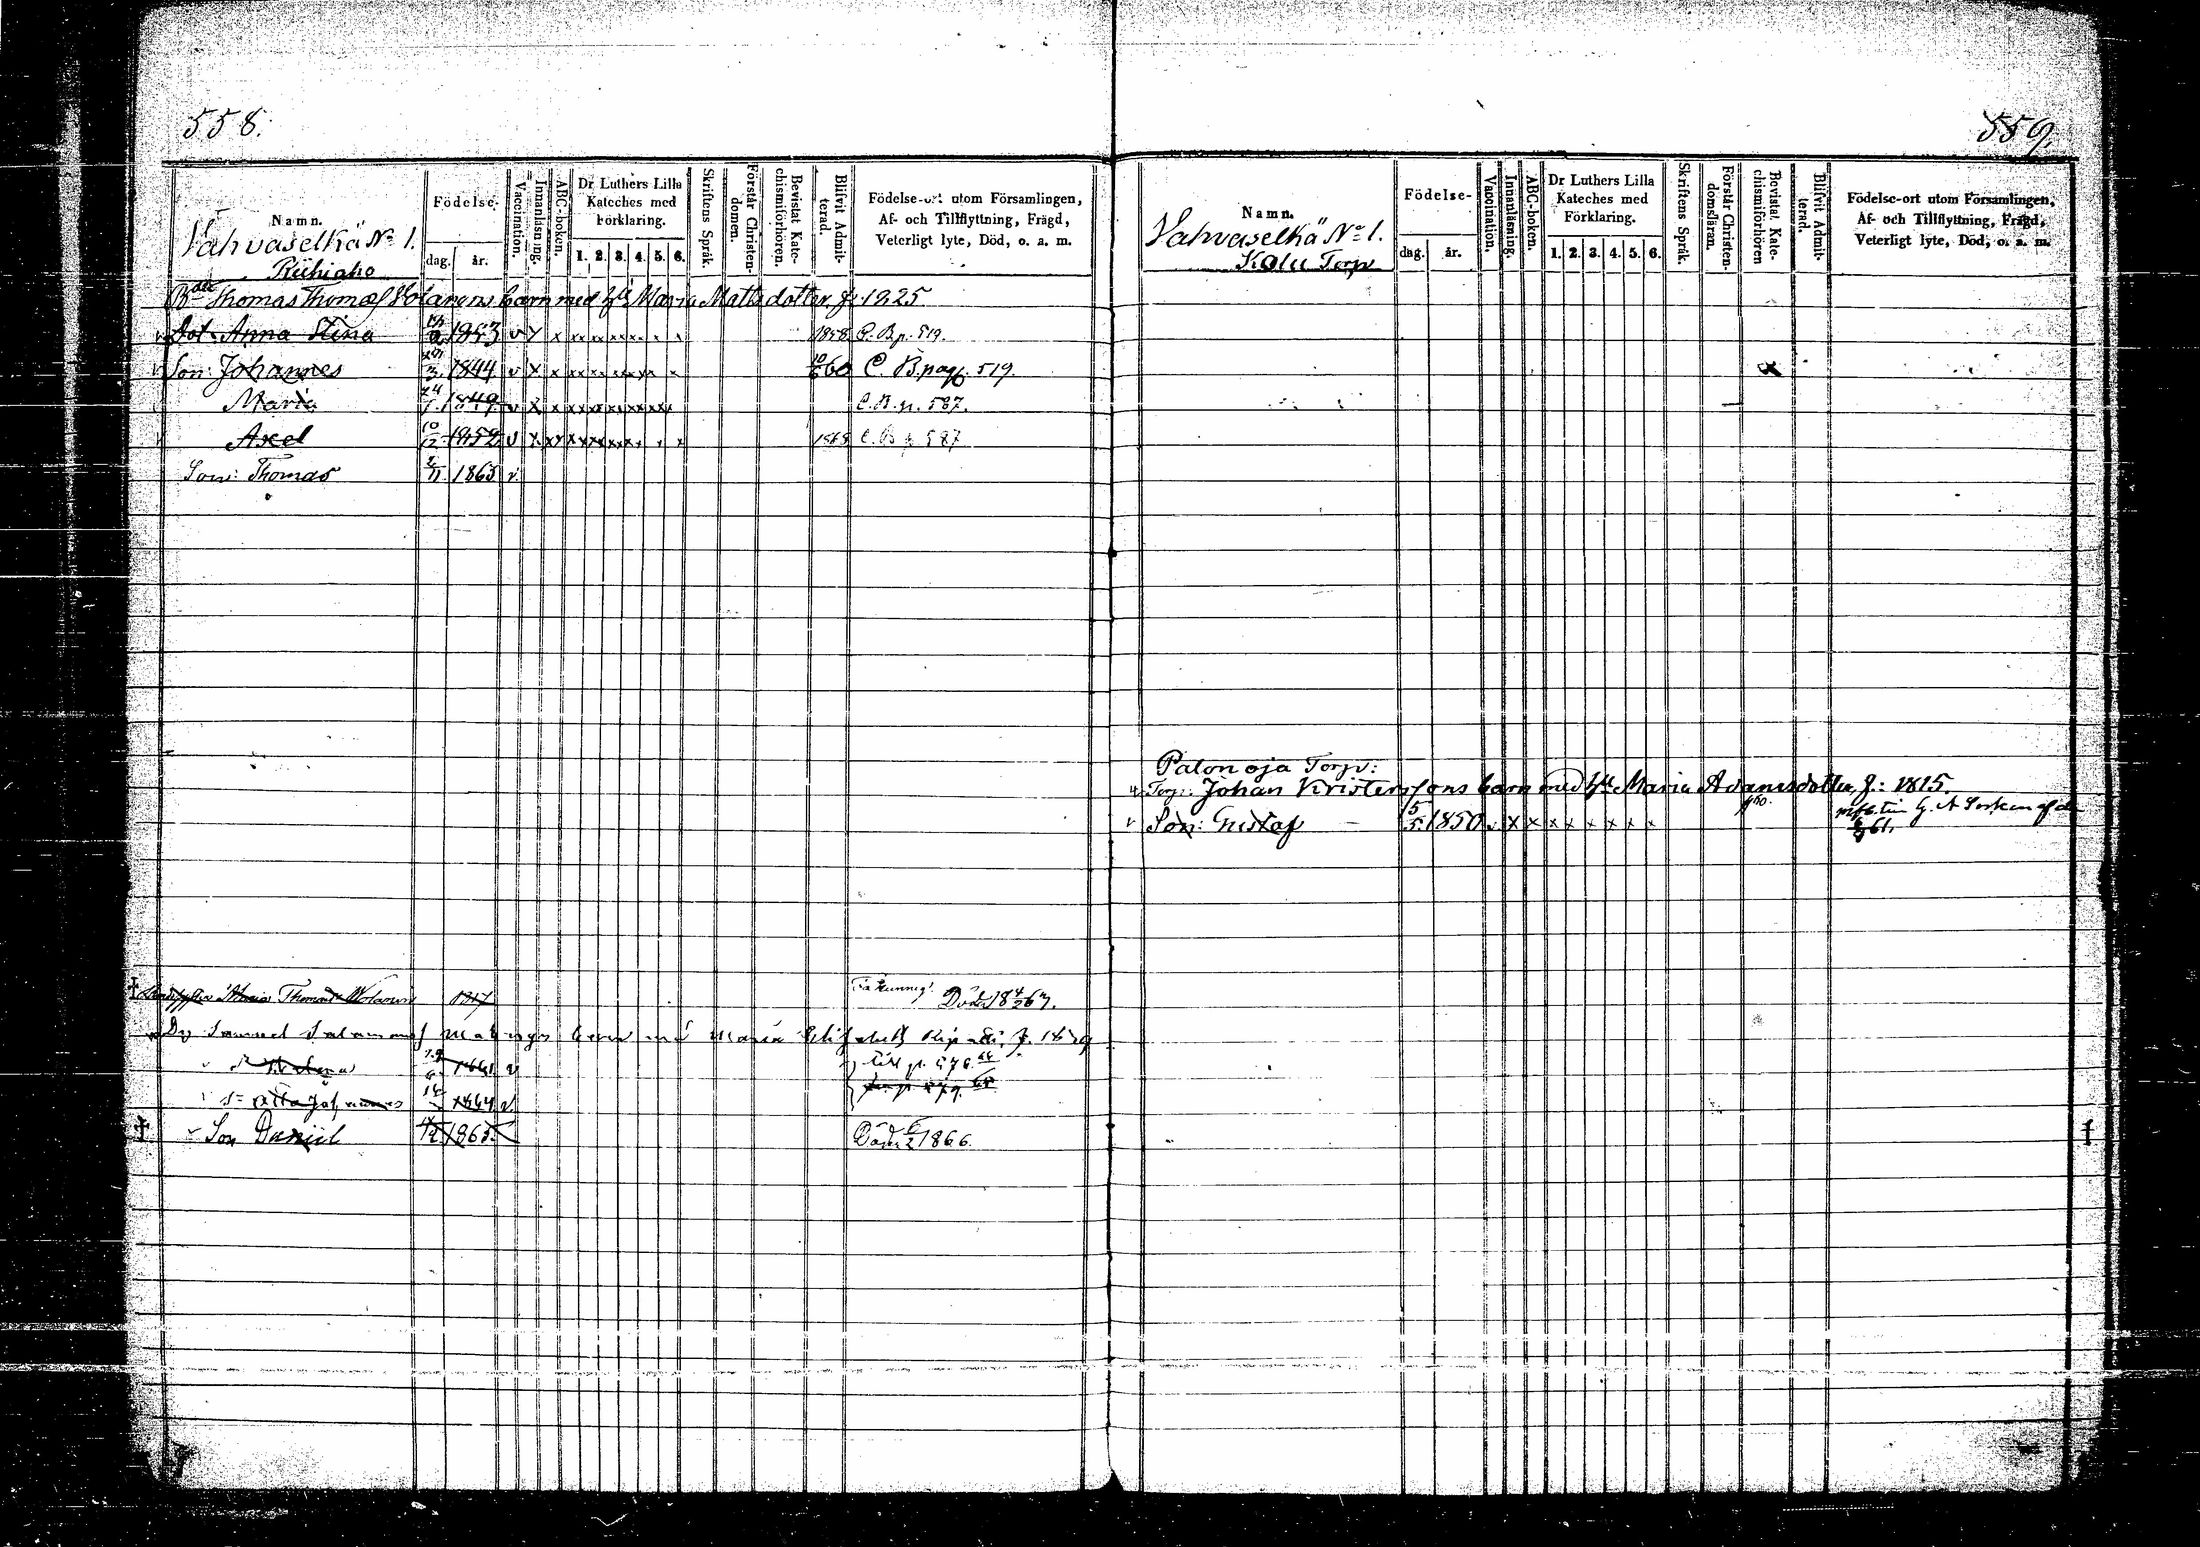 558.
Namn.
Vahvaselkä No 1.
Riihiaho
Födelse-
dag. år.
Vaccination.
Innanläsning.
ABC-boken.
Dr Luthers Lilla
Kateches med
Förklaring.
1. 2. 3. 4. 5. 6.
Skriftens Språk.
Förstår Christen-
domen.
Bevistat Kate-
chismiförhören.
Blifvit Admit-
terad.
Födelse-ort utom Församlingen,
Af- och Tillflyttning, Frägd,
Veterligt lyte, Död, o. a. m.
Thomas Thomæss barn med Maria Mattsdotter f. 1825
Dot. Anna Stina 1853 v x x x x x x x x 1858 C. B. p. 519.
Son: Johannes 1844 v x x x x x x x x 10/6 60 C. B. pag. 519.
Maria 24/1 1849 v x x x x x x x x C. B. p. 587.
Axel 10/12 1852 v x x x x x x x x C. B. p. 587
Son: Thomas 2/11 1865 v.
1817 Död 18 4/26 67.
Samuel Salamonss barn Maria Elisabeth
1861 v
Otto Johannes 1864 v.
Son Daniel 1865 Död 1866.
559.
Namn.
Vahvaselkä No 1.
Kalu Torp
Födelse-
dag. år.
Vaccination.
Innanläsning.
ABC-boken.
Dr Luthers Lilla
Kateches med
Förklaring.
1. 2. 3. 4. 5. 6.
Skriftens Språk.
Förstår Christen-
domsläran.
Bevistat Kate-
chismiförhören
Blifvit Admit-
terad.
Födelse-ort utom Församlingen,
Af- och Tillflyttning, Frägd,
Veterligt lyte, Död, o. a. m.
Palonoja Torp:
Torp: Johan Kristerssons barn med Maria Adamsdotter, f: 1815.
Son: Gustaf 5/5 1850 v x x x x x x x x 61.